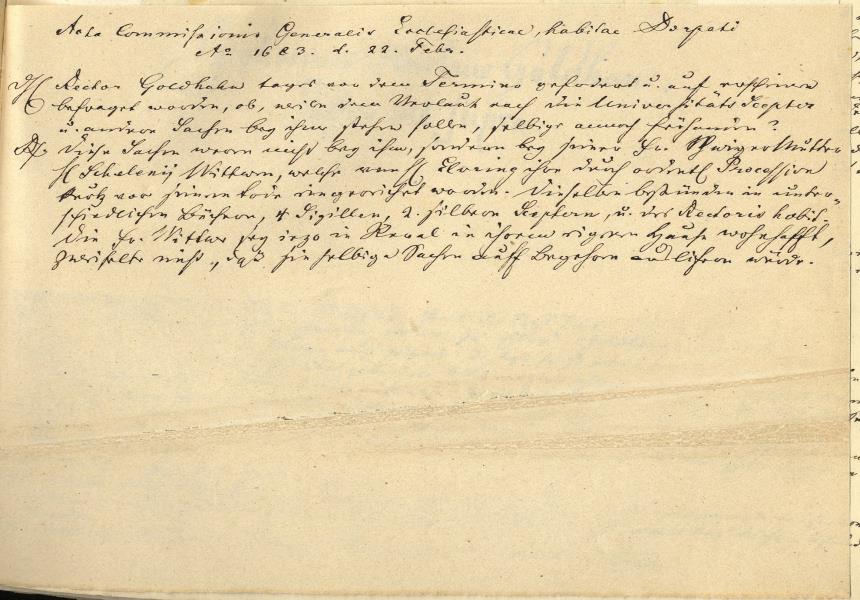 Acta Commissionis Generalis Ecclesiasticae, habitae Dorpati
Ao 1683. d. 22. Febr.
Rector Goldhahn tages vor dem Termino gefodert u. auf erscheinen
befraget worden, ob, weilen dem Verlaut nach die Universitäts Sceptra
u. andere Sachen bey ihm stehen sollen, selbige annoch fürhanden?
Diese Sachen weren nicht bey ihm, sondern bey seiner Fr. SchwigerMutter
H Schelenij Wittwen, welche von H Elvering ihr durch ordentl Procession
kurtz vor seinem tode eingereichet worden. Dieselben bestünden in unter-
schiedlichen Büchern, 4 Sigillen, 2. silbern Sceptern, u. des Rectoris habit.
Die Fr. Wittwe sey iezo in Reval in ihrem eigenen Hause wohnhafft,
Zweiffelte nicht, daß sie selbige Sachen auff Begehren ausliefern würde.